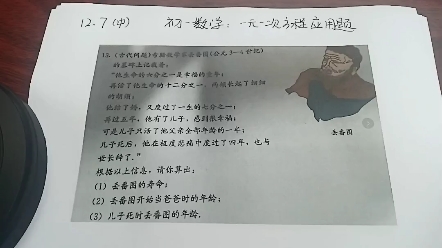 12.7(中) 初一数学:一元一次方程应用题
15.(古代问题)希腊数学家丢番图(公元3—4世纪)
的墓碑上记载着:
"他生命的六分之一是幸福的童年;
再活了他生命的十二分之一,两颊长起了细细
的胡须;
他结了婚,又度过了一生的七分之一;
再过五年,他有了儿子,感到很幸福;
可是儿子只活了他父亲全部年龄的一半;
儿子死后,他在极度悲痛中度过了四年,也与
世长辞了."
根据以上信息,请你算出:
(1)丢番图的寿命;
(2)丢番图开始当爸爸时的年龄;
(3)儿子死时丢番图的年龄.
丢番图